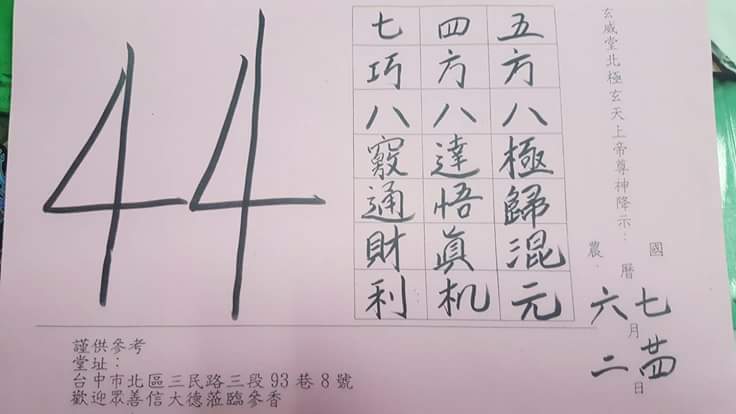 玄威堂北極玄天上帝尊神降示：
國曆
農
七月廿四日
六月二日
五方八極歸混元
四方八達悟眞机
七巧八竅通財利
44
謹供參考
堂址：
台中市北區三民路三段93巷8號
歡迎眾善信大德蒞臨參香